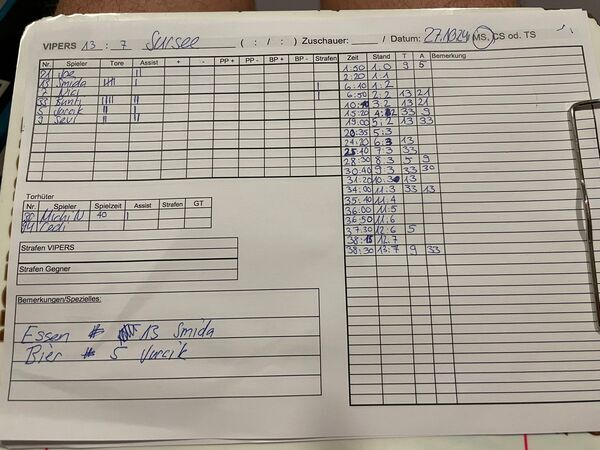 VIPERS 13 : 7 Sursee ( : / : ) Zuschauer: / Datum: 27.10.24 MS, CS od. TS
Nr. Spieler Tore Assist + - PP + PP - BP + BP - Strafen
21 Joe II
13 Smida IIII I
7 Mici II
33 Bänti IIII II
5 Vurcik II II
9 Sevi II II
Torhüter
Nr. Spieler Spielzeit Assist Strafen GT
Michi N 40 I
Cedi
Strafen VIPERS
Strafen Gegner
Bemerkungen/Spezielles:
Essen 13 Smida
Bier 5 Vurcik
Zeit Stand T A Bemerkung
1:50 1:0 9 5
2:20 1:1
6:10 1:2
6:50 2:2 13 21
3:2 13 21
15:20 4:2 33 9
19:00 5:2 13 33
20:35 5:3
24:20 6:3 13
25:10 7:3 33
28:30 8:3 5 9
30:40 9:3 33 30
31:20 10:3 13
34:00 11:3 33 13
35:40 11:4
36:00 11:5
36:50 11:6
37:30 12:6 5
12:7
38:50 13:7 9 33